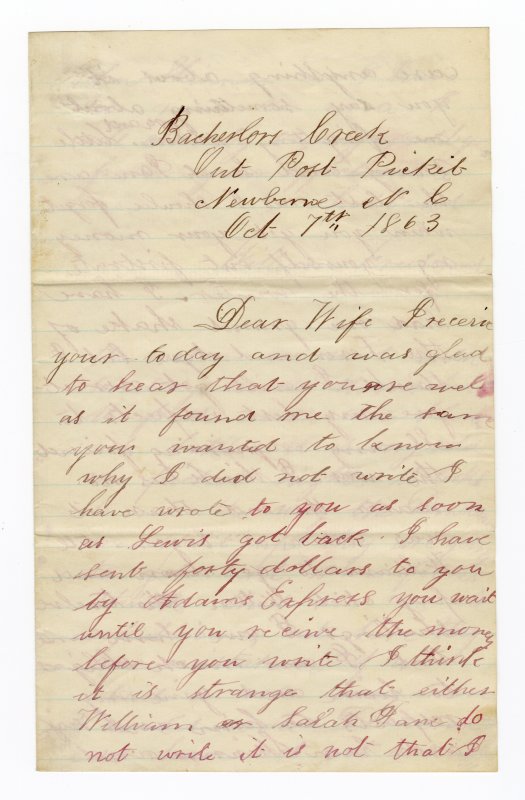 Bacherlors Creek
Out Post Pickit
Newberne N C
Oct 7th 1863
Dear Wife I receive
your today and was glad
to hear that you are well
as it found me the sam
you wanted to know
why I did not write I
have wrote to you as soon
as Lewis got back. I have
sent forty dollars to you
by Adams Express you wait
until you receive the money
before you write I think
it is strange that either
William or Sarah Jane do
not write it is not that I